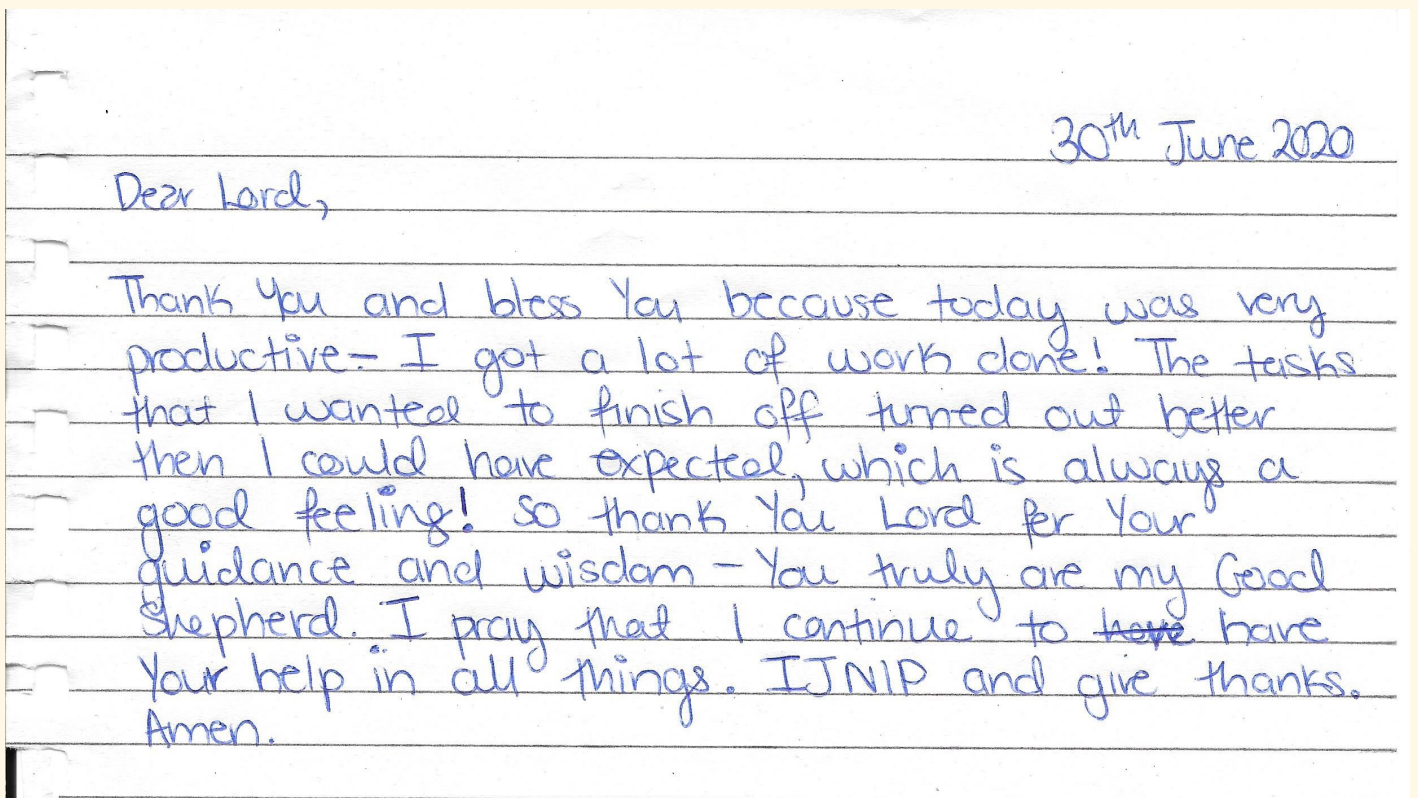 30th June 2020
Dear Lord,
Thank You and bless You because today was very
productive - I got a lot of work done! The tasks
that I wanted to finish off turned out better
then I could have expected, which is always a
good feeling! So thank You Lord for Your
guidance and wisdom - You truly are my Good
Shepherd. I pray that I continue to have have
Your help in all things. IJNIP and give thanks.
Amen.